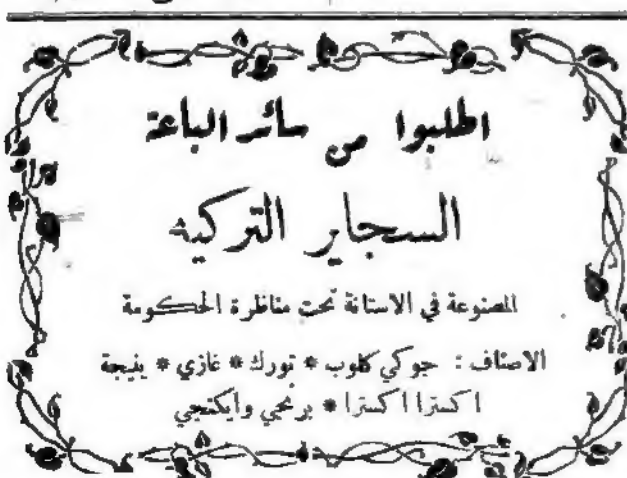 اطلبوا من سائر الباعة
السجاير التركيه
المصنوعة في الاستانة تحت مناظرة الحكومة
الاصناف : جوكي كلوب * تورك * غازي * ينيجة
اكسترا اكسترا * برنجي وايكنجي